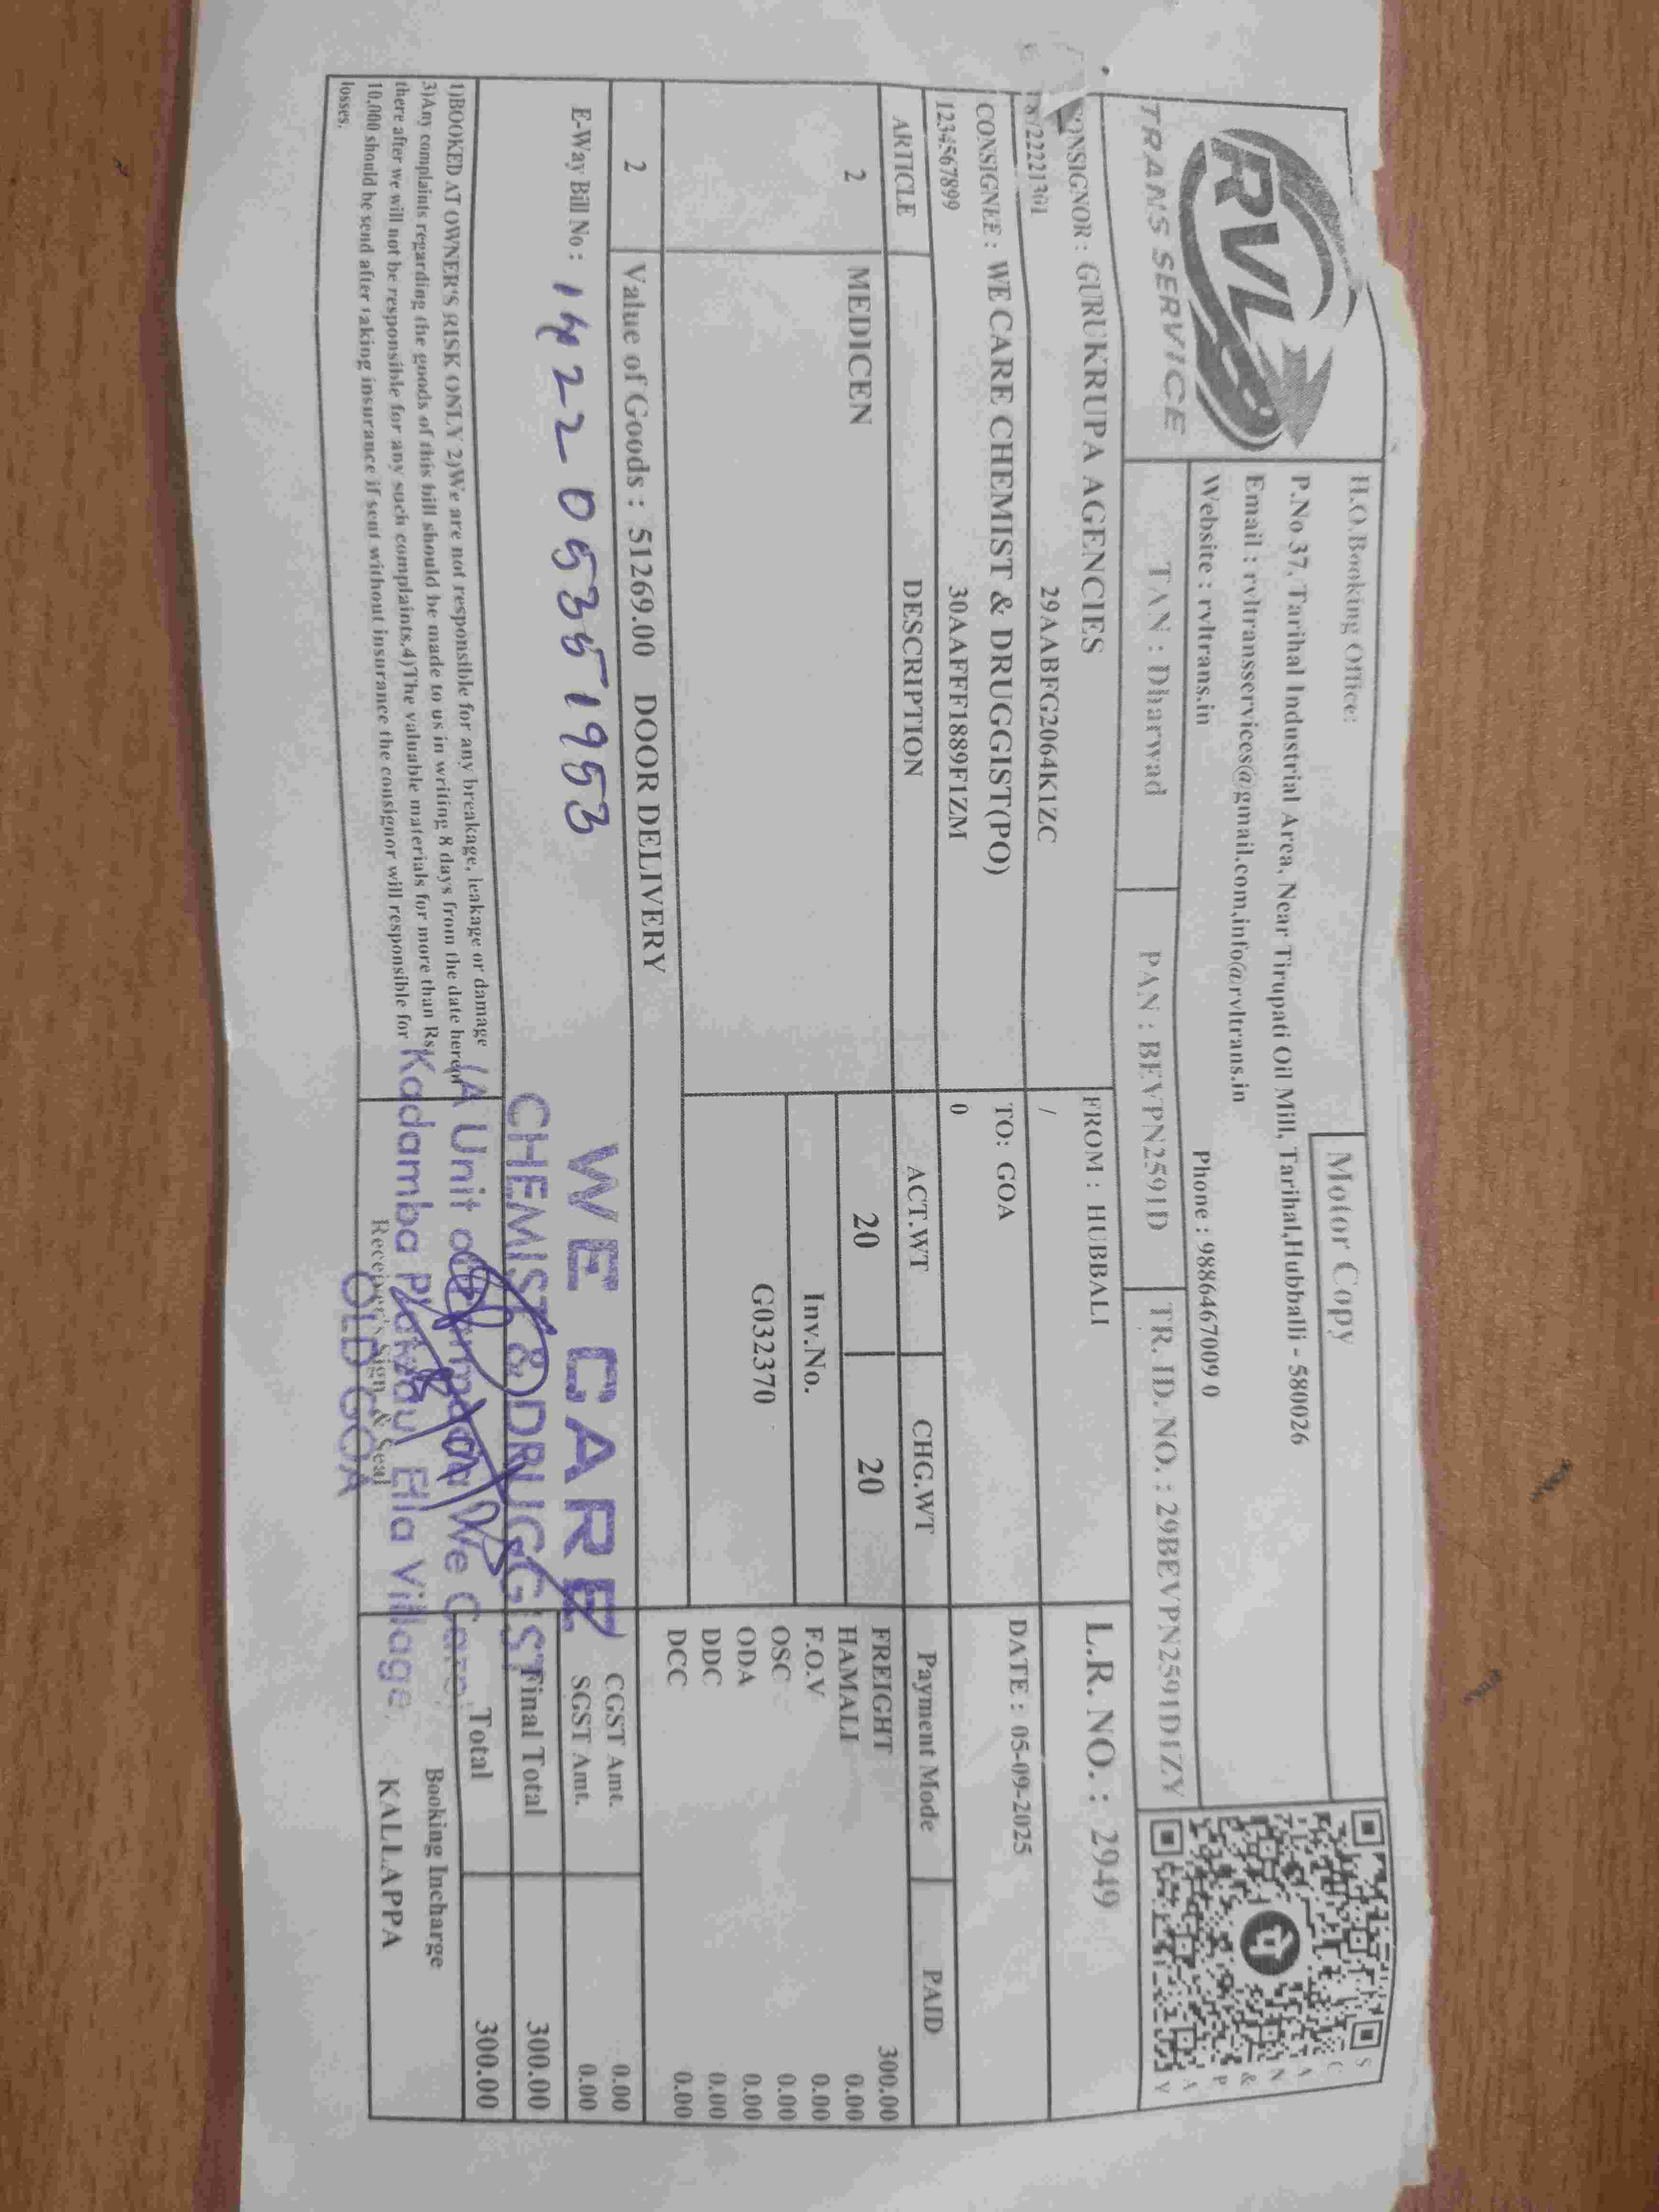 RVL
TRANS SERVICE
H.O.Booking Office:
Motor Copy
P.No 37, Tarihal Industrial Area, Near Tirupati Oil Mill, Tarihal,Hubballi - 580026
Email : rvltransservices@gmail.com,info@rvltrans.in
Website : rvltrans.in Phone : 9886467009 0
SCAN & PAY
TAN : Dharwad PAN : BEVPN2591D TR. ID. NO. : 29BEVPN2591D1ZY
CONSIGNOR : GURUKRUPA AGENCIES FROM : HUBBALI L.R. NO. : 2949
29AABFG2064K1ZC /
CONSIGNEE : WE CARE CHEMIST & DRUGGIST(PO) TO: GOA DATE : 05-09-2025
1234567899 30AAFFF1889F1ZM 0
ARTICLE DESCRIPTION ACT.WT CHG.WT Payment Mode PAID
2 MEDICEN 20 20 FREIGHT 300.00
HAMALI 0.00
Inv.No. F.O.V 0.00
OSC 0.00
G032370 ODA 0.00
DDC 0.00
DCC 0.00
2 Value of Goods : 51269.00 DOOR DELIVERY
CGST Amt. 0.00
E-Way Bill No : SGST Amt. 0.00
Final Total 300.00
Total 300.00
WE CARE
CHEMIST & DRUGGIST
(A Unit of We Care)
Kadamba Plateau, Ella Village,
OLD GOA
1)BOOKED AT OWNER'S RISK ONLY 2)We are not responsible for any breakage, leakage or damage
3)Any complaints regarding the goods of this bill should be made to us in writing 8 days from the date hereof
there after we will not be responsible for any such complaints.4)The valuable materials for more than Rs.
10,000 should be send after taking insurance if sent without insurance the consignor will responsible for
losses.
Receiver's Sign. & Seal
Booking Incharge
KALLAPPA